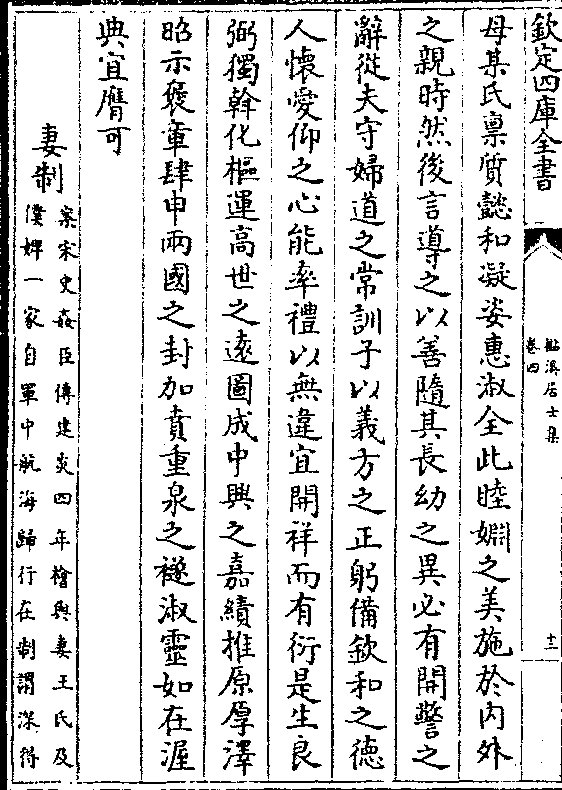 欽定四庫全書
苕溪居士集
卷四
十三
母某氏禀質懿和凝姿惠淑全此睦婣之美施於内外
之親時然後言導之以善隨其長幼之異必有開警之
辭從夫守婦道之常訓子以義方之正躬備欽和之德
人懷愛仰之心能率禮以無違宜開祥而有衍是生良
弼獨斡化樞運高世之遠圖成中興之嘉績推原厚澤
昭示褒章肆申兩國之封加賁重泉之襚淑靈如在渥
典宜膺可
妻制
案宋史姦臣傳建炎四年檜與妻王氏及
僕婢一家自軍中航海歸行在制謂深得